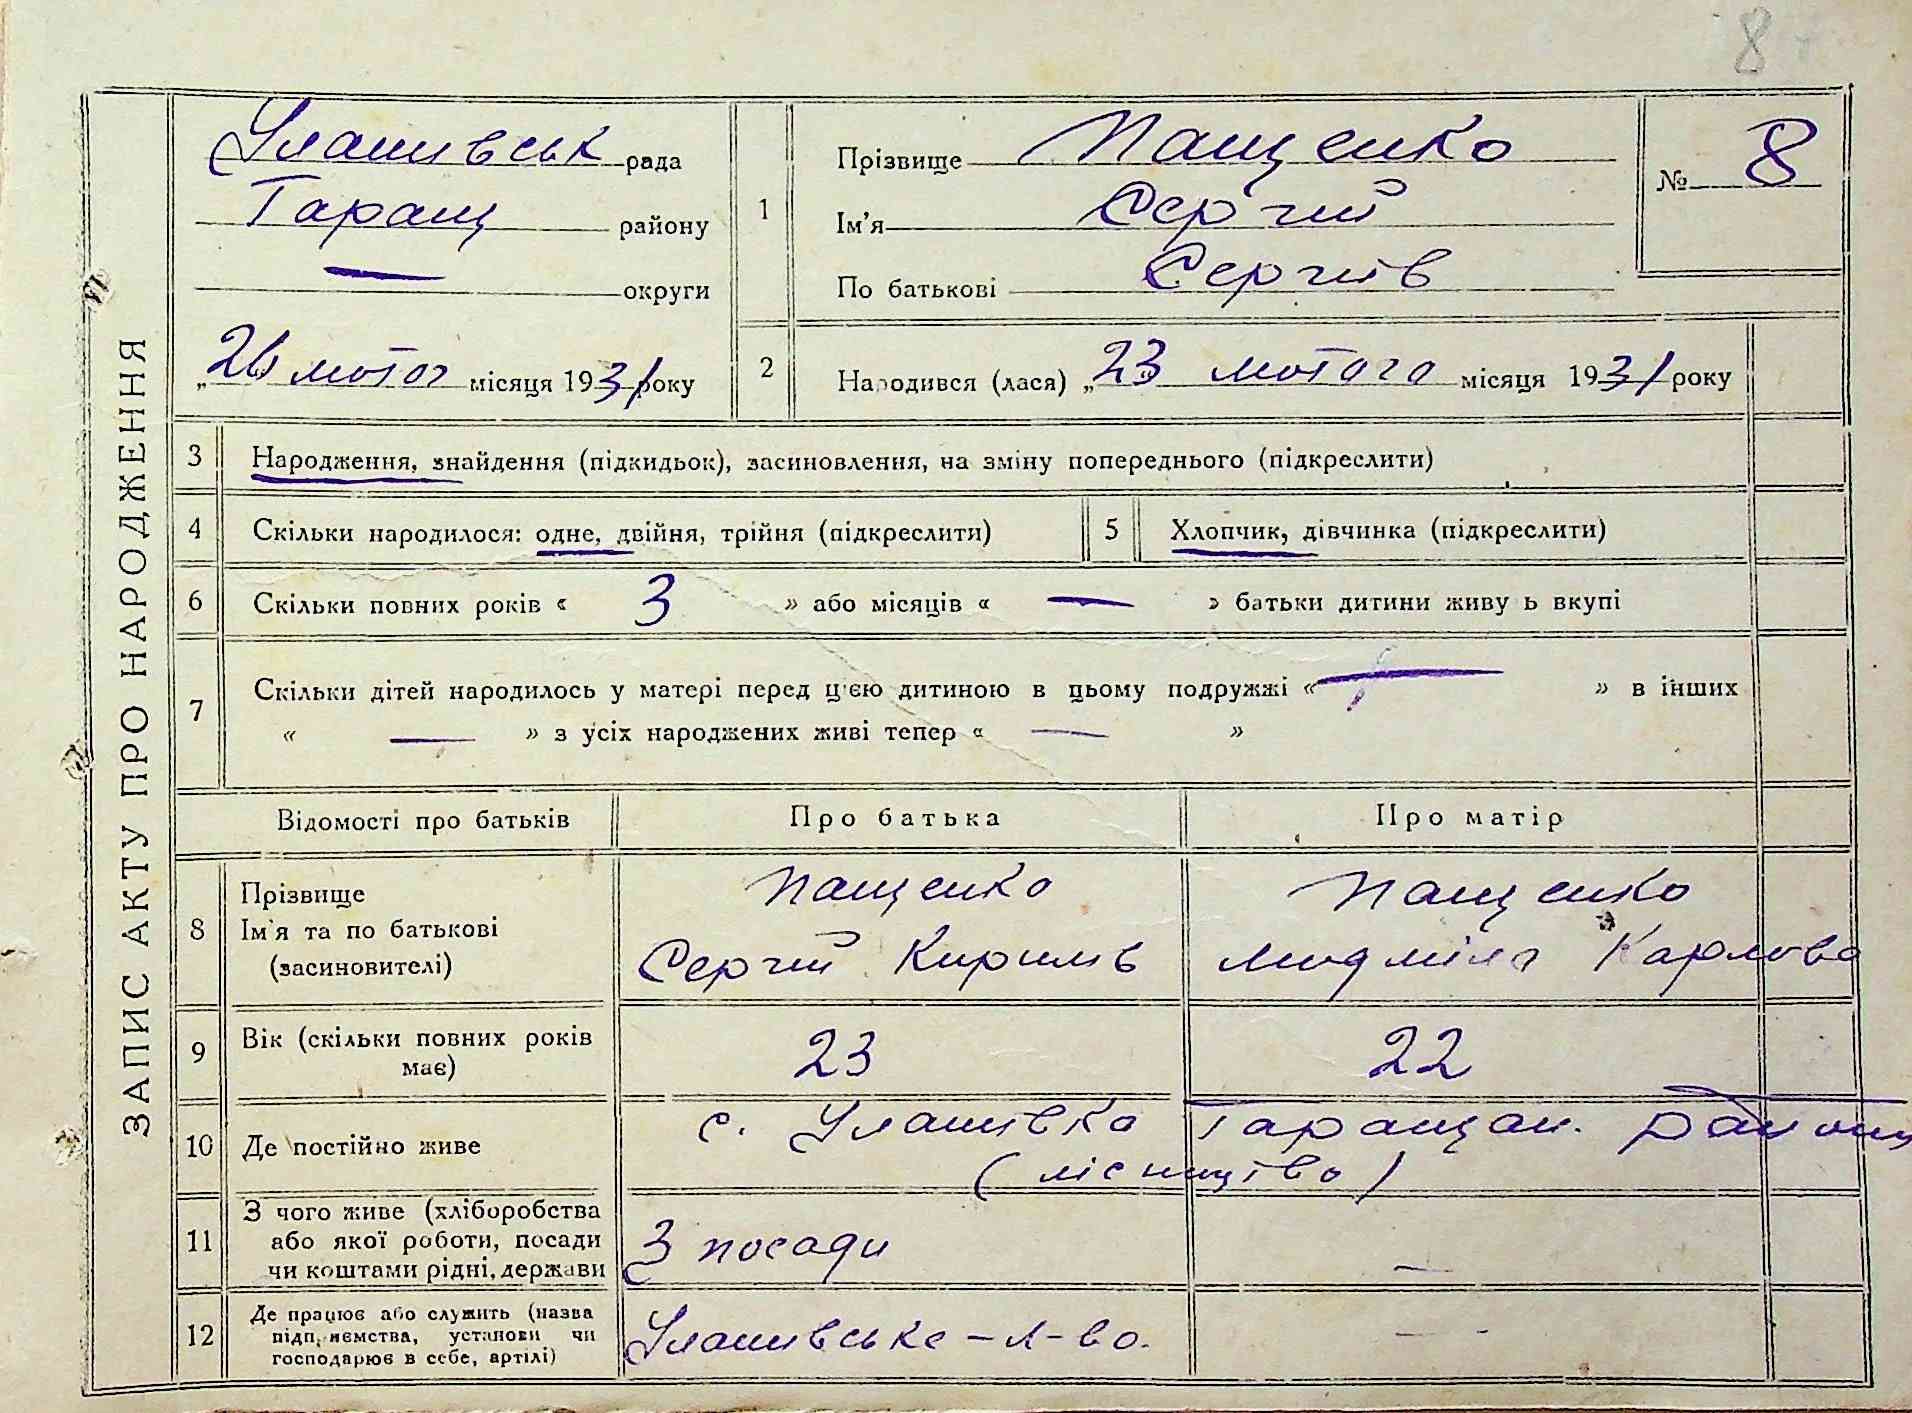 8
ЗАПИС АКТУ ПРО НАРОДЖЕННЯ
Улашивськ рада
Таращ району
— округи
„26 лютог місяця 1931 року
1
Прізвище Пащенко
Ім’я Сергій
По батькові Сергіїв
№ 8
2
Народився (лася) „23 лютого місяця 1931 року
3 Народження, знайдення (підкидьок), засиновлення, на зміну попереднього (підкреслити)
4 Скільки народилося: одне, двійня, трійня (підкреслити)
5 Хлопчик, дівчинка (підкреслити)
6 Скільки повних років « 3 » або місяців « — » батьки дитини живу ь вкупі
7 Скільки дітей народилось у матері перед цією дитиною в цьому подружжі « — » в інших
« — » з усіх народжених живі тепер « — »
Відомості про батьків Про батька Про матір
8 Прізвище
Ім’я та по батькові
(засиновителі)
Пащенко
Сергій Кирилів
Пащенко
Людміла Карлова
9 Вік (скільки повних років
має)
23 22
10 Де постійно живе
с. Улашивка Таращан. району
(лісництво)
11 З чого живе (хліборобства
або якої роботи, посади
чи коштами рідні, держави
З посади —
12 Де працює або служить (назва
підприємства, установи чи
господарює в себе, артілі)
Улашивське – л-во. — -